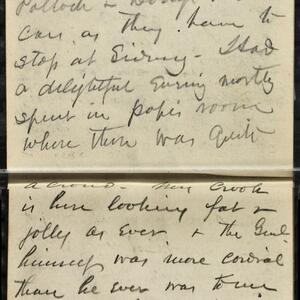 cars as they have to
stop at Sidney - Had
a delightful Evening mostly
spent in Pops room
where there was quite
a crowd - Crook
is here looking fat &
jolly as Ever & the Genl
himself was more cordial
than he ever was to me